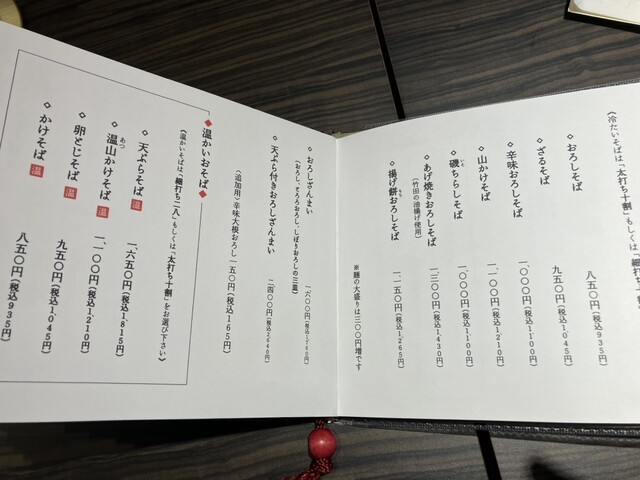 〈冷たいそばは「太打ち十割」もしくは「細打ち
おろしそば 八五〇円(税込935円)
ざるそば 九五〇円(税込1,045円)
辛味おろしそば 一、〇〇〇円(税込1,100円)
山かけそば 一、一〇〇円(税込1,210円)
磯ちらしそば 一、〇〇〇円(税込1,100円)
いそ
あげ焼きおろしそば 一、三〇〇円(税込1,430円)
(竹田の油揚げ使用)
揚げ餅おろしそば 一、一五〇円(税込1,265円)
もち
※麺の大盛りは三〇〇円増です
おろしざんまい 一、六〇〇円(税込1,760円)
(おろし、とろろおろし、しぼりおろしの三皿)
天ぷら付きおろしざんまい 二、四〇〇円(税込2,640円)
〈追加用〉辛味大根おろし 一五〇円(税込165円)
温かいおそば
〈温かいそばは、「細打ち二八」もしくは「太打ち十割」をお選び下さい〉
天ぷらそば 温 一、六五〇円(税込1,815円)
温山かけそば 温 一、一〇〇円(税込1,210円)
あつ
卵とじそば 温 九五〇円(税込1,045円)
かけそば 温 八五〇円(税込935円)